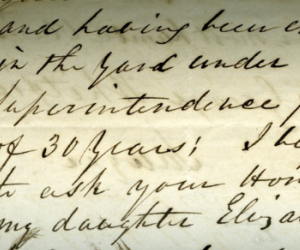 and having been
in the Yard under
Superintendence
of 30 Years; I
ask your
my daughter